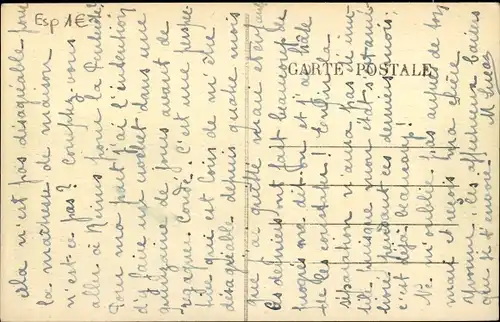 Esp 1€
CARTE POSTALE
Cela n'est pas désagréable pour
la maîtresse de maison
n'est-ce pas? Comptez-vous
aller à Reims pour la Pentecôte?
Pour ma part j'ai l'intention
d'y faire un crochet dans une
quinzaine de jours avant de
regagner Condé. C'est une perspec-
tive qui est loin de m'être
désagréable depuis quatre mois
que j'ai quitté mari et enfant
Ces derniers ont fait beaucoup de
progrès me dit-on et j'ai hâte
de les constater! Enfin la
séparation n'aura pas été inu-
tile puisque mon état s'est amé-
lioré pendant ces derniers mois
c'est déjà beaucoup!
Ne m'oubliez pas auprès de ton
mari et reçois ma chère
les affectueux baisers
que je t'envoie.